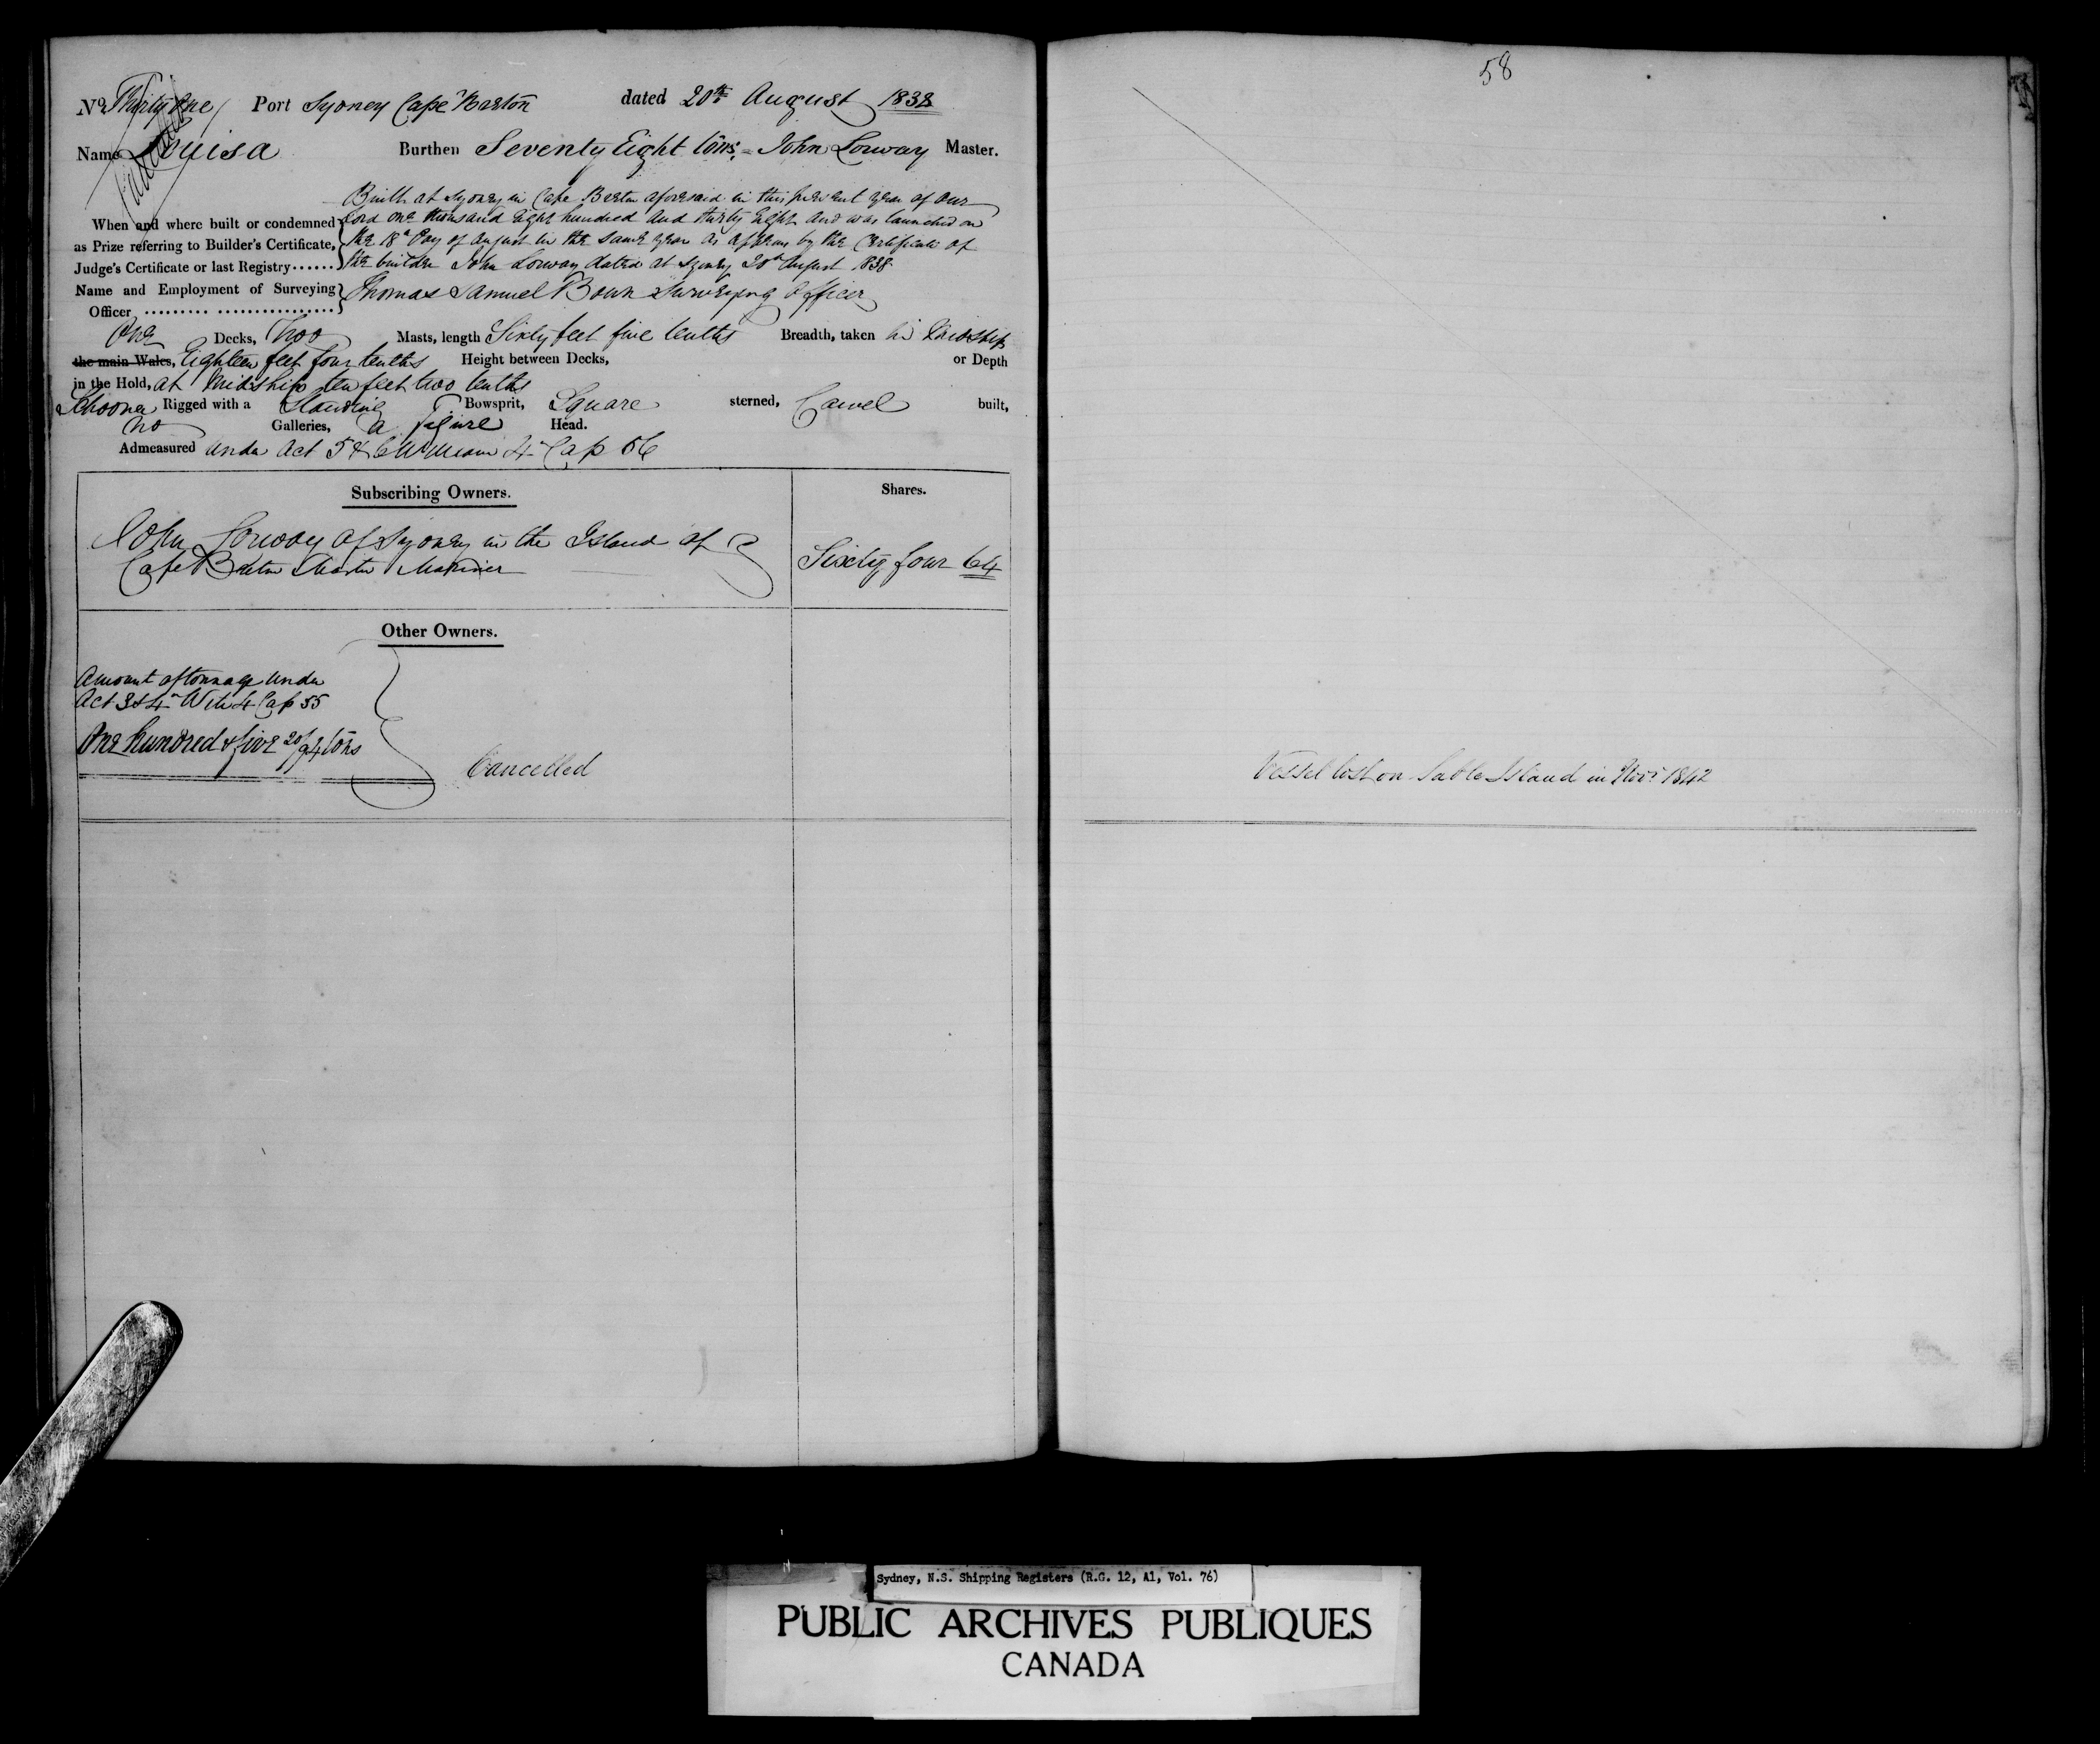 No Thirty One Port Sydney Cape Breton dated 20th August 1838
Cancelled
Name Louisa Burthen Seventy Eight tons, = John Lorway Master.
When and where built or condemned
as Prize referring to Builder's Certificate,
Judge's Certificate or last Registry......
Built at Sydney in Cape Breton aforesaid in this present year of our
Lord one thousand Eight hundred and thirty Eight and was launched on
the 18th Day of August in the same year as appears by the Certificate of
the builder John Lorway dated at Sydney 20th August 1838
Name and Employment of Surveying
Officer ......... .................
Thomas Samuel Bown Surveying Officer
One Decks, Two Masts, length Sixty feet five tenths Breadth, taken in Midship
the main Wales, Eighteen feet four tenths Height between Decks, or Depth
in the Hold, at Midship ten feet two tenths
Schooner Rigged with a Standing Bowsprit, Square sterned, Carvel built,
no Galleries, a figure Head.
Admeasured under Act 5 & 6 William 4 Cap 56
Subscribing Owners. Shares.
John Lorway of Sydney in the Island of
Cape Breton Master Mariner
Sixty four 64
Other Owners.
Amount of tonnage under
Act 3 & 4 Will 4 Cap 55
One hundred & five 20/94 tons
Cancelled
58
Vessel lost on Sable Island in Novr 1842
Sydney, N.S. Shipping Registers (R.G. 12, A1, Vol. 76)
PUBLIC ARCHIVES PUBLIQUES
CANADA